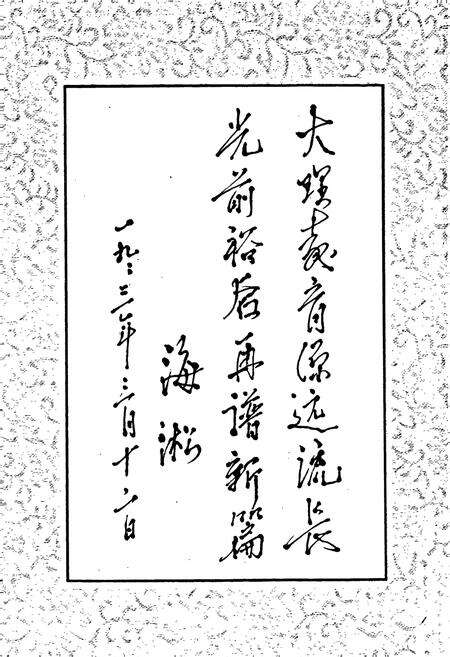 大理教育源远流长
光前裕后再谱新篇
海淞
一九九三年三月十六日